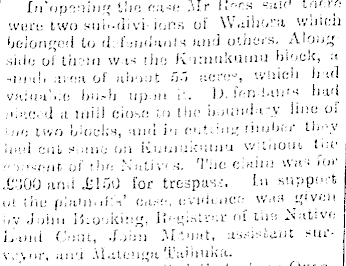 In opening the case Mr Rees said there
were two sub-divisions of Waihora which
belonged to defendants and others. Along
side of them was the Kumukumu block, a
small area of about 55 acres, which had
valuable bush upon it. Defendants had
placed a mill close to the boundary line of
the two blocks, and in cutting timber they
had cut some on Kumukumu without the
consent of the Natives. The claim was for
£300 and £150 for trespass. In support
of the plaintiffs' case, evidence was given
by John Brooking, Registrar of the Native
Land Court, John Mount, assistant sur-
veyor, and Matenga Tahuka.